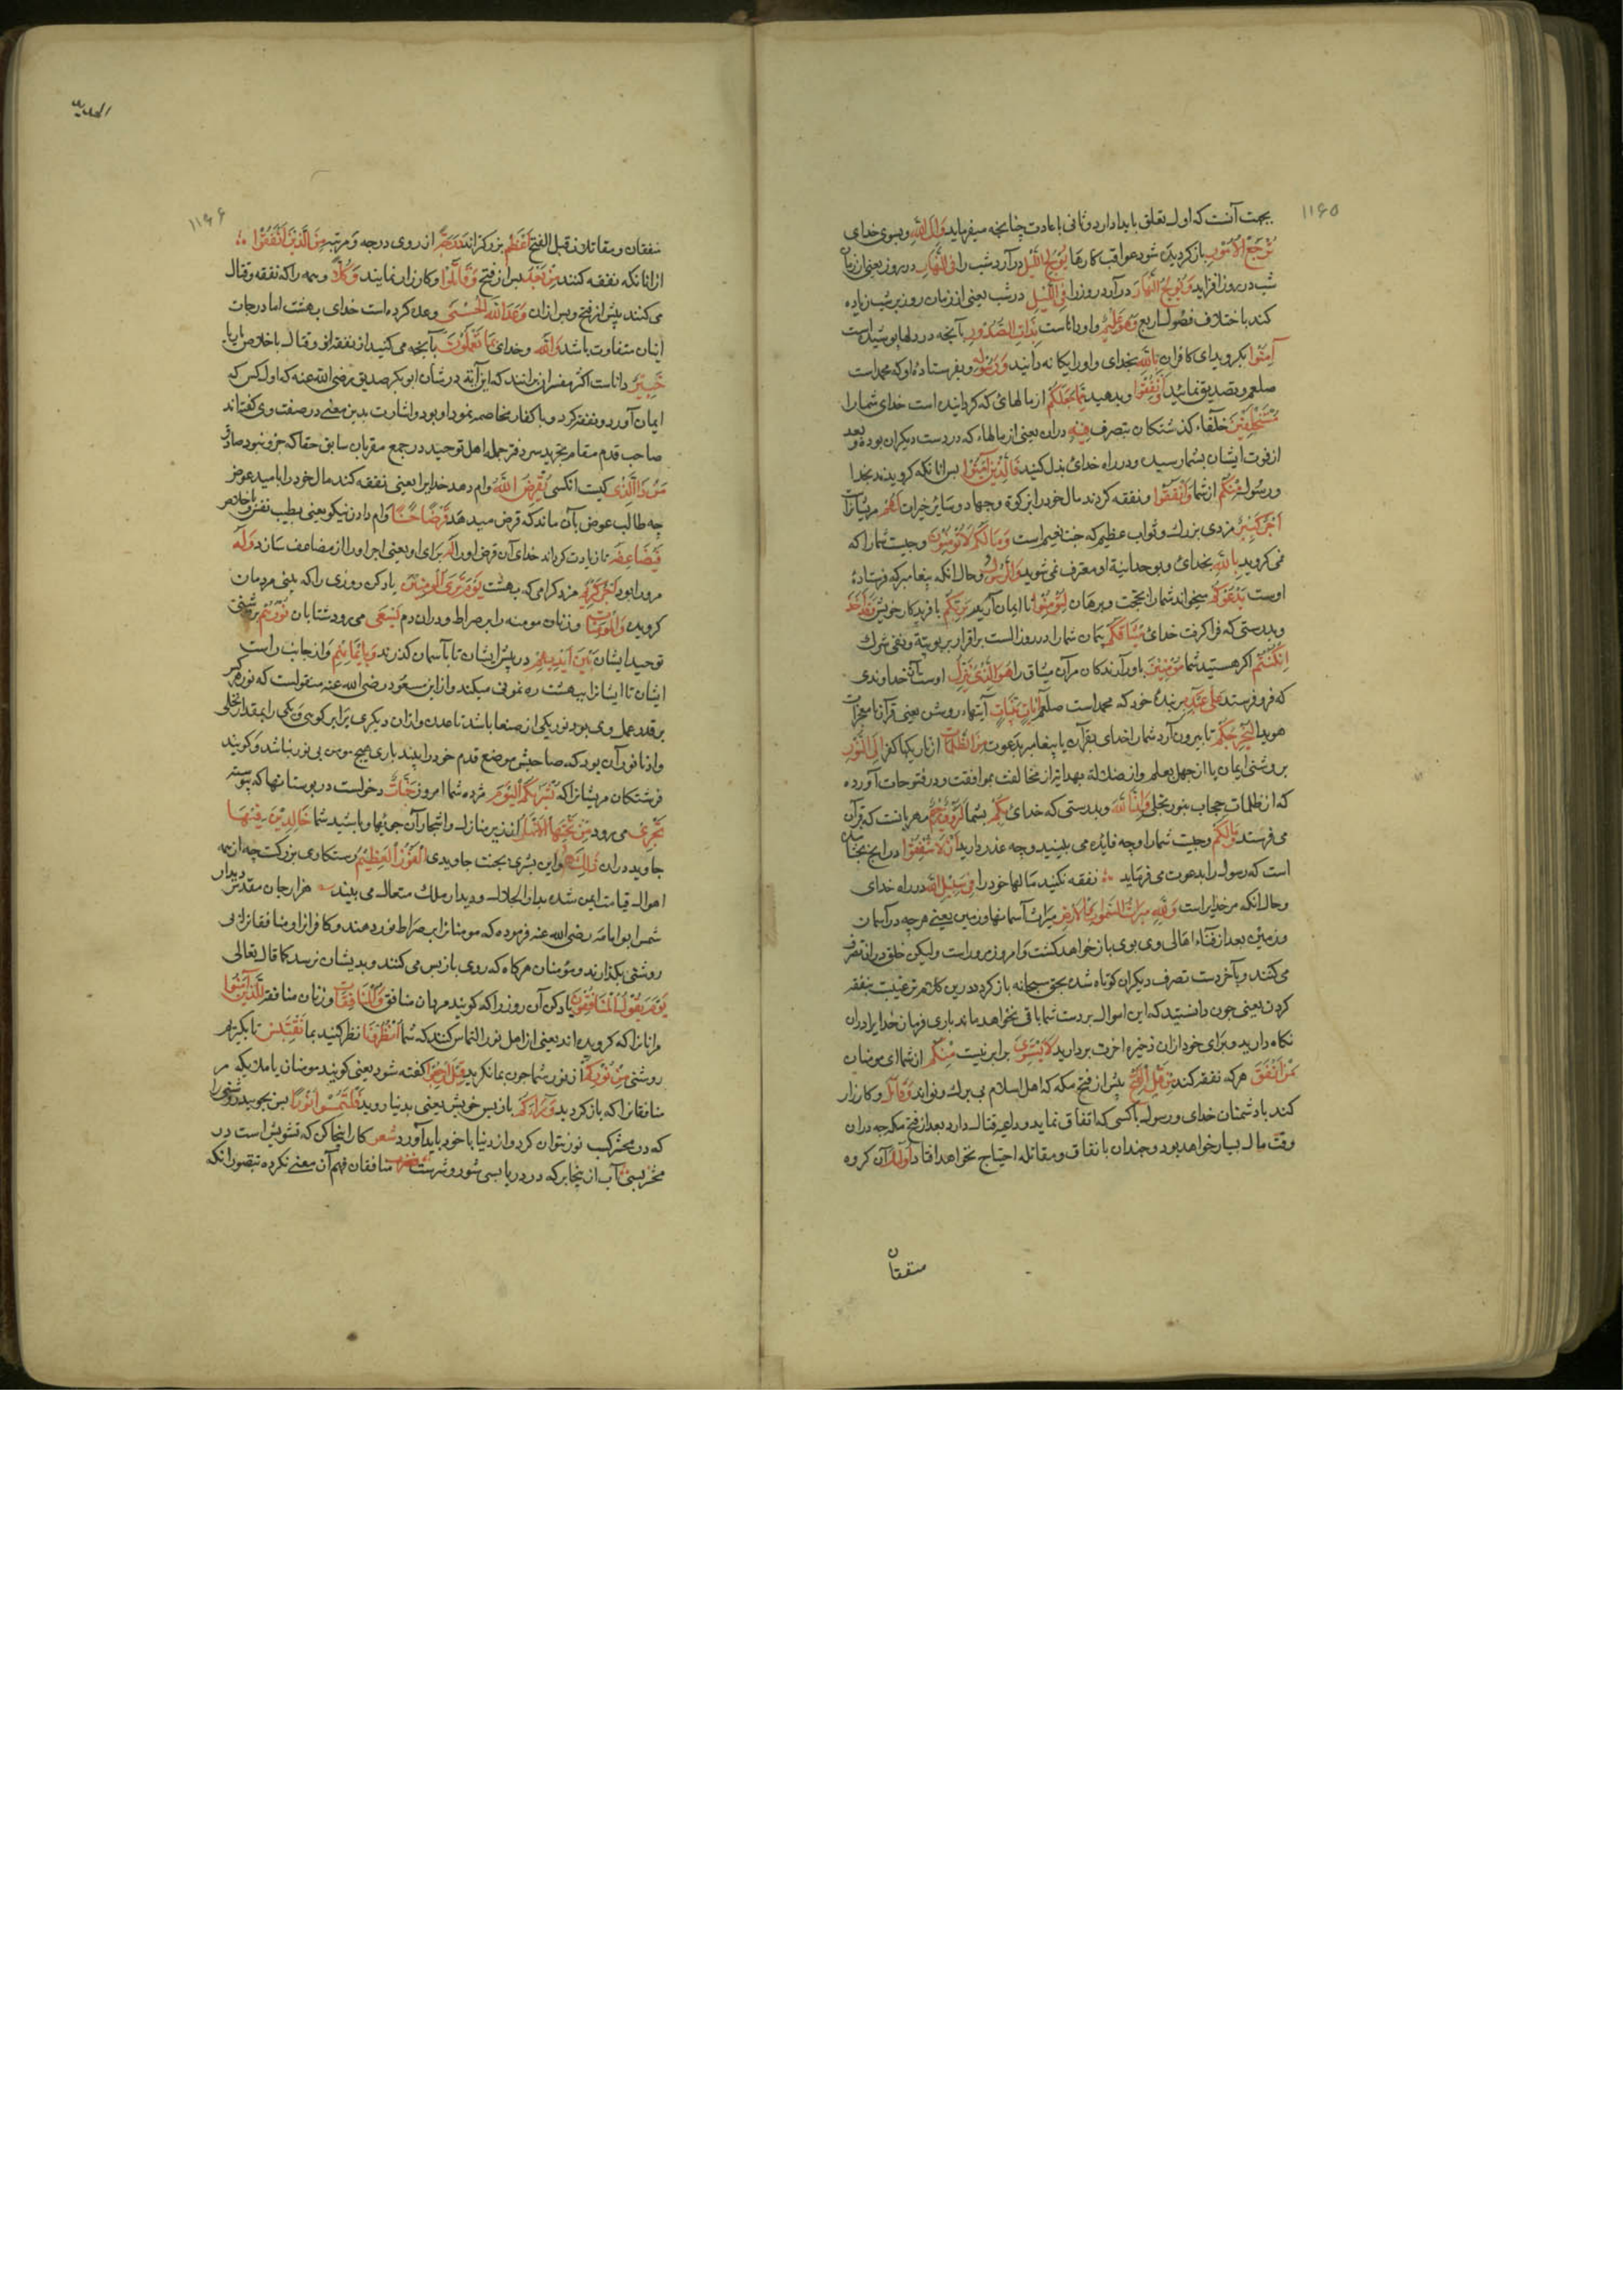 ١١٤٥
بجهت آنست که اول تعلق بایدا دارد و ثانی باعادت چنانچه میفرماید وَاِلَی اللّهِ وبسوی خدای
تُرْجَعُ الْاُمُوْرُ بازکردیدن شود عواقب کارها یُوْلِجُ اللَّیْلَ درآرد شب را فِی النَّهَارِ در روز یعنی از زمان
شب در روز افزاید وَیُوْلِجُ النَّهَارَ درآرد روز را فِی اللَّیْلِ در شب یعنی از زمان روز بر شب زیاده
کند باختلاف فصول اربع وَهُوَ عَلِیْمٌ واو داناست بِذَاتِ الصُّدُوْرِ بآنچه در دلها پوشیده است
آمِنُوْا بکروید ای کافران بِاللّهِ بخدای واورا یکانه دانید وَرَسُوْلِهِ وبفرستادۀ او که محمد است
صلعم وتصدیق نمائید وَاَنْفِقُوْا وبدهید مِمَّا جَعَلَکُمْ از مالهای که کردانیده است خدای شما را
مُسْتَخْلَفِیْنَ خلفاء کذشتکان بتصرف فِیْهِ دران یعنی از مالهاء که در دست دیکران بوده و بعد
از فوت ایشان بشما رسیده ودر راه خدای بذل کنید فَالَّذِیْنَ آمَنُوْا پس آنانکه کرویدند بخدا
ورسول مِنْکُمْ از شما وَاَنْفَقُوْا ونفقه کردند مال خود را از زکوة وجهاد وسایر خیرات لَهُمْ مریشانرا
اَجْرٌ کَبِیْرٌ مزدی بزرک وثواب عظیم که جنت نعیم است وَمَا لَکُمْ لَا تُؤْمِنُوْنَ وچیست شما را که
نمی کروید بِاللّهِ بخدای وبوحدانیة او معترف نمی شوید وَالرَّسُوْلُ وحال آنکه پیغامبر که فرستادۀ
اوست یَدْعُوْکُمْ میخواند شما را بحجت وبرهان لِتُؤْمِنُوْا تا ایمان آرید بِرَبِّکُمْ بآفریدکار خویش وَقَدْ اَخَذَ
وبدرستی که فرا کرفت خدای مِیْثَاقَکُمْ پیمان شما را در روز الست بر اقرار بربوبیة ونفی شرک
اِنْ کُنْتُمْ اکر هستید شما مُؤْمِنِیْنَ باور آرندکان مرآن میثاق را هُوَ الَّذِیْ یُنَزِّلُ اوست آن خداوندی
که فرو فرستد عَلَی عَبْدِهِ بر بندۀ خود که محمد است صلعم آیَاتٍ بَیِّنَاتٍ آیتهاء روشن یعنی قرآن با معجزات
هویدا لِیُخْرِجَکُمْ تا بیرون آرد شما را خدای بقرآن یا پیغامبر بدعوت مِنَ الظُّلُمَاتِ از تاریکیها کفر اِلَی النُّوْرِ
بروشنی ایمان یا از جهل بعلم واز ضلالة بهدایة از مخالفت بموافقت ودر فتوحات آورده
که از ظلمات حجاب بنور تجلی وَاِنَّ اللّهَ وبدرستی که خدای بِکُمْ بشما لَرَؤُفٌ رَحِیْمٌ مهربانست که قرآن
می فرستد وَمَا لَکُمْ وچیست شما را وچه فایده می بینید وچه عذر دارید اَنْ لَا تُنْفِقُوْا
است که رسول را بدعوت می فرماید نفقه نکنید مالها خود را فِیْ سَبِیْلِ اللّهِ در راه خدای
وحال آنکه مر خدایراست وَلِلّهِ مِیْرَاثُ السَّمٰوَاتِ وَالْاَرْضِ میراث آسمانها وزمین یعنی هرچه در آسمان
وزمین بعد از فناء اهالی وی بوی باز خواهد کشت وامروز مر وراست ولیکن خلق دران تصرف
می کنند وبآخر دست تصرف دیکران کوتاه شده بحق سبحانه باز کردد درین کلام ترغیبست بنفقه
کردن یعنی چون دانستید که این اموال بر دست شما باقی نخواهد ماند باری فرمان خدایرا دران
نکاه دارید وبرای خود ازان ذخیره آخرت بردارید لَا یَسْتَوِیْ برابر نیست مِنْکُمْ از شما ای مومنان
مَنْ اَنْفَقَ هرکه نفقه کند مِنْ قَبْلِ الْفَتْحِ پیش از فتح مکه که اهل اسلام بی برک ونوااند وَقَاتَلَ وکارزار
کند با دشمنان خدای ورسول با کسی که انفاق نماید وداعیه قتال دارد بعد از فتح مکه چه دران
وقت مال بسیار خواهد بود وچندان بانفاق ومقاتله احتیاج نخواهد افتاد اُولٰئِکَ آن کروه
منفقان
الحدید
١١٤٦
منفقان ومقاتلان قبل الفتح اَعْظَمُ بزرکترانند دَرَجَةً از روی درجه ومرتبه مِنَ الَّذِیْنَ اَنْفَقُوْا
ازانانکه نفقه کنند مِنْ بَعْدُ پس از فتح وَقَاتَلُوْا وکارزار نمایند وَکُلًّا وهمه را که نفقه وقتال
می کنند پیش از فتح وپس ازان وَعَدَ اللّهُ الْحُسْنَی وعده کرده است خدای بهشت اما درجات
ایشان متفاوت باشد وَاللّهُ وخدای بِمَا تَعْمَلُوْنَ بآنچه می کنید از نفقه وقتال باخلاص یا ریا
خَبِیْرٌ داناست اکثر مفسران برانند که این آیة در شان ابوبکر صدیق رضی الله عنه که اول کس که
ایمان آورد ونفقه کرد وبا کفار مخاصمه نمود او بود واشارت بدین معنی در صفت وی کفته اند
صاحب قدم مقام تجرید سردفتر جمله اهل توحید در جمع مقربان سابق حقا که چو او نبود صادق
مَنْ ذَا الَّذِیْ کیست آنکسی یُقْرِضُ اللّهَ وام دهد خدایرا یعنی نفقه کند مال خود را بامید عوض
چه طالب عوض بآن ماند که قرض میدهد قَرْضًا حَسَنًا وام دادن نیکو یعنی بطیب نفس وباخلاص
فَیُضَاعِفَهُ تا زیادت کرداند خدای آن قرض اورا لَهُ برای او یعنی اجر اورا از مضاعف سازد وَلَهُ
مر ورا بود اَجْرٌ کَرِیْمٌ مزد کرامی که بهشت یَوْمَ تَرَی الْمُؤْمِنِیْنَ یاد کن روزی را که بینی مردمان
کرویده وَالْمُؤْمِنَاتِ وزنان مومنه را بر صراط ودران دم یَسْعَی می رود شتابان نُوْرُهُمْ روشنی
توحید ایشان بَیْنَ اَیْدِیْهِمْ در پیش ایشان تا بآسمان کذرند وَبِاَیْمَانِهِمْ واز جانب راست
ایشان تا ایشانرا ببهشت ره نمونی میکند واز ابن مسعود رضی الله عنه منقولست که نور هر کس
برقدر عمل وی بود نور یکی از صنعا باشد تا عدن وازان دیکری برابر کوهی ویکی را بمقدار نخلی
وادنا نور آن بود که صاحبش موضع قدم خود را بیند باری هیچ مومن بی نور نباشد وکویند
فرشتکان مریشانرا که بُشْرَاکُمُ الْیَوْمَ مژده شما امروز جَنَّاتٌ دخولست در بوستانها که پیوسته
تَجْرِیْ می رود مِنْ تَحْتِهَا الْاَنْهَارُ از زیر منازل واشجار آن جویها وباشید شما خَالِدِیْنَ فِیْهَا
جاوید دران ذٰلِکَ هُوَ این بشری بجنت جاویدی الْفَوْزُ الْعَظِیْمُ رستکاری بزرکست چه از همه
اهوال قیامت ایمن شده بدار الجلال ودیدار ملک متعال می بینند هزار جان مقدس
شمس ابو امامه رضی الله عنه فرموده که مومنانرا بر صراط نور دهند وکافرانرا ومنافقانرا بی
روشنی بکذارند ومومنان هرکاه که روی باز پس می کنند وبدیشان نرسد کما قال تعالی
یَوْمَ یَقُوْلُ الْمُنَافِقُوْنَ یاد کن آن روز را که کویند مردان منافق وَالْمُنَافِقَاتُ وزنان منافقه لِلَّذِیْنَ آمَنُوا
مرانانرا که کرویده اند یعنی از اهل نور التماس کنند که شما اُنْظُرُوْنَا نظر کنید بما نَقْتَبِسْ تا بکیریم
روشنی مِنْ نُوْرِکُمْ از نور شما چون بما نکرید قِیْلَ ارْجِعُوْا کفته شود یعنی کویند مومنان یا ملایکه مر
منافقانرا که باز کردید وَرَاءَکُمْ باز پس خویش یعنی بدنیا روید فَالْتَمِسُوْا نُوْرًا پس بجویید روشنی را
که در محشر کسب نور نتوان کرد واز دنیا با خود باید آورد شعر کار اینجا کن که تشویش است در
محشر بسی آب از ینجا بر که در دریا بسی شور وشرست منافقان فهم آن معنی نکرده بتصور آنکه